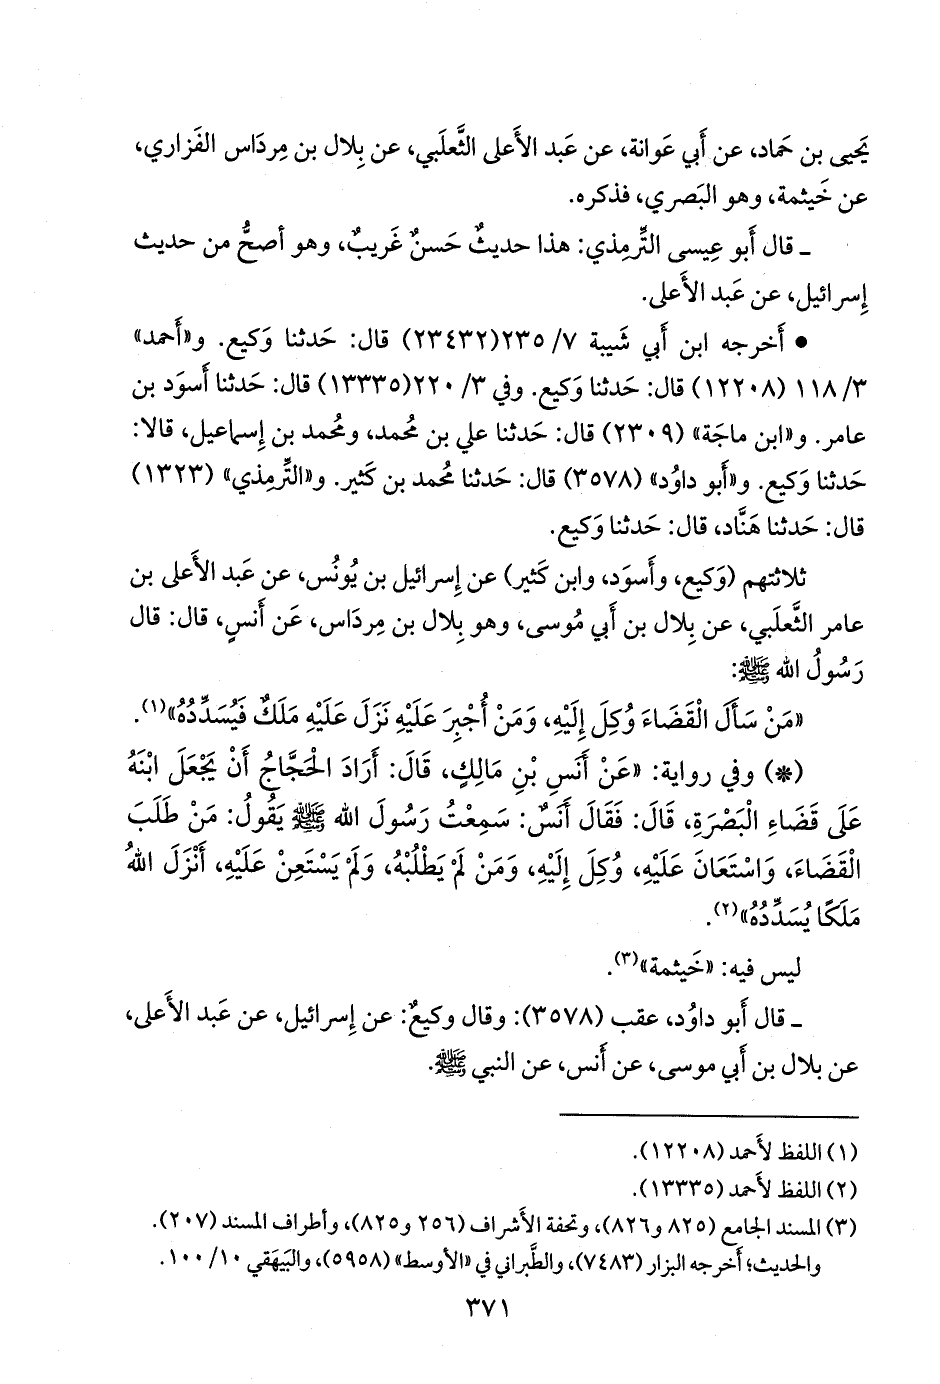 يَحيى بن حَماد، عن أَبي عَوانة، عن عَبد الأَعلى الثَّعلَبي، عن بِلال بن مِردَاس الفَزاري،
عن خَيثمة، وهو البَصري، فذكره.
ـ قال أَبو عِيسى التِّرمِذي: هذا حديثٌ حَسنٌ غَريبٌ، وهو أَصحُّ من حديث
إِسرائيل، عن عَبد الأَعلى.
• أَخرجه ابن أَبي شَيبة ٧/ ٢٣٥(٢٣٤٣٢) قال: حَدثنا وَكيع. و«أَحمد»
٣/ ١١٨ (١٢٢٠٨) قال: حَدثنا وَكيع. وفي ٣/ ٢٢٠(١٣٣٣٥) قال: حَدثنا أَسوَد بن
عامر. و«ابن ماجَة» (٢٣٠٩) قال: حَدثنا علي بن مُحمد، ومُحمد بن إِسماعيل، قالا:
حَدثنا وَكيع. و«أَبو داوُد» (٣٥٧٨) قال: حَدثنا مُحمد بن كَثير. و«التِّرمِذي» (١٣٢٣)
قال: حَدثنا هَنَّاد، قال: حَدثنا وَكيع.
ثلاثتهم (وَكيع، وأَسوَد، وابن كَثير) عن إِسرائيل بن يُونُس، عن عَبد الأَعلى بن
عامر الثَّعلَبي، عن بِلال بن أَبي مُوسى، وهو بِلال بن مِردَاس، عَن أَنسٍ، قال: قال
رَسُولُ الله ﷺ:
«مَنْ سَأَلَ الْقَضَاءَ وُكِلَ إِلَيْهِ، وَمَنْ أُجْبِرَ عَلَيْهِ نَزَلَ عَلَيْهِ مَلَكٌ فَيُسَدِّدُهُ»(١).
(*) وفي رواية: «عَنْ أَنَسِ بْنِ مَالِكٍ، قَالَ: أَرَادَ الْحَجَّاجُ أَنْ يَجْعَلَ ابْنَهُ
عَلَى قَضَاءِ الْبَصْرَةِ، قَالَ: فَقَالَ أَنَسٌ: سَمِعْتُ رَسُولَ الله ﷺ يَقُولُ: مَنْ طَلَبَ
الْقَضَاءَ، وَاسْتَعَانَ عَلَيْهِ، وُكِلَ إِلَيْهِ، وَمَنْ لَمْ يَطْلُبْهُ، وَلَمْ يَسْتَعِنْ عَلَيْهِ، أَنْزَلَ اللهُ
مَلَكًا يُسَدِّدُهُ»(٢).
ليس فيه: «خَيثمة»(٣).
ـ قال أَبو داوُد، عقب (٣٥٧٨): وقال وكيعٌ: عن إِسرائيل، عن عَبد الأَعلى،
عن بلال بن أَبي موسى، عن أَنس، عن النبي ﷺ.
(١) اللفظ لأَحمد (١٢٢٠٨).
(٢) اللفظ لأَحمد (١٣٣٣٥).
(٣) المسند الجامع (٨٢٥ و٨٢٦)، وتحفة الأَشراف (٢٥٦ و٨٢٥)، وأَطراف المسند (٢٠٧).
والحديث؛ أَخرجه البزار (٧٤٨٣)، والطَّبراني في «الأَوسط» (٥٩٥٨)، والبَيهَقي ١٠/ ١٠٠.
٣٧١